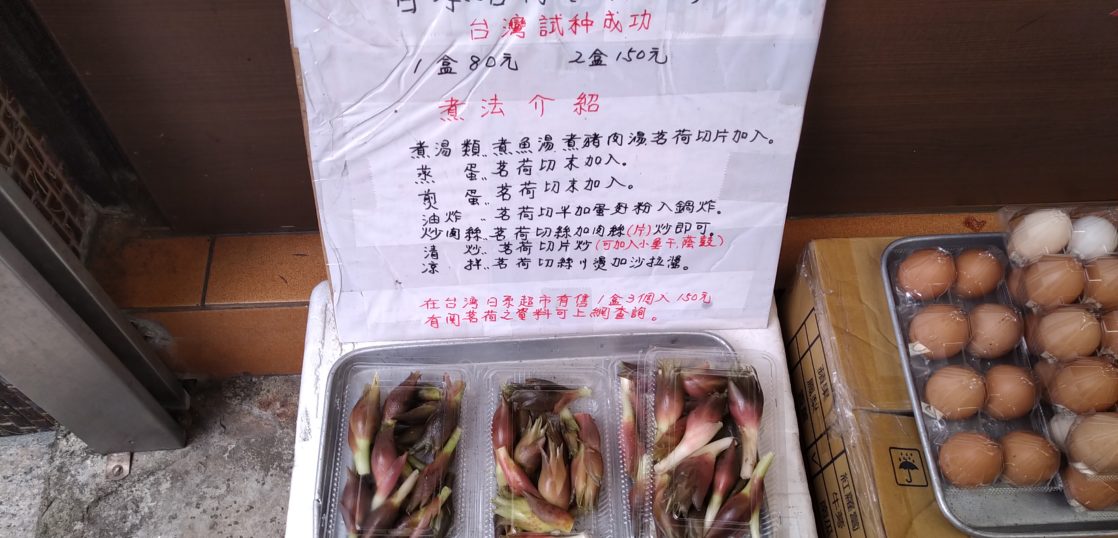 台灣試种成功
1盒80元 2盒150元
煮法介紹
煮湯類:煮魚湯,煮豬肉湯,茗荷切片加入。
蒸 蛋:茗荷切末加入。
煎 蛋:茗荷切末加入。
油炸:茗荷切半加蛋麵粉入鍋炸。
炒肉絲:茗荷切絲加肉絲(片)炒即可。
清 炒:茗荷切片炒(可加入小魚干,蔭鼓)
涼 拌:茗荷切絲川燙加沙拉醬。
在台灣日系超市有售1盒3個入150元
有関茗荷之資料可上網查詢。